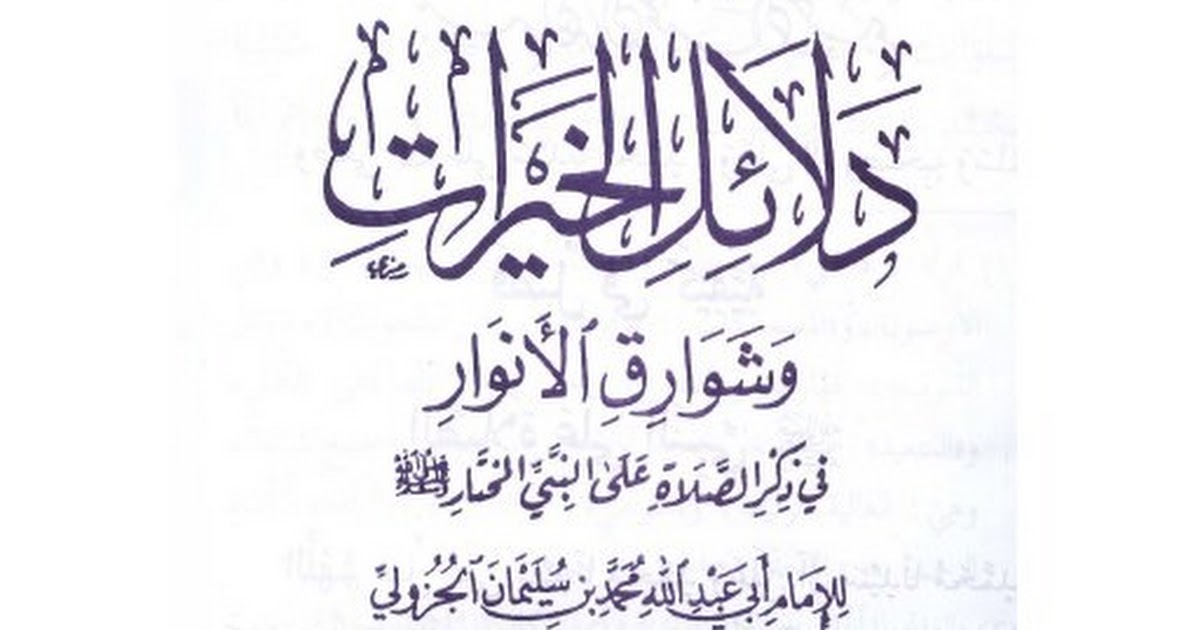 دَلَائِلُ الْخَيْرَاتِ
وَشَوَارِقِ ٱلْأَنْوَارِ
فِي ذِكْرِ الصَّلَاةِ عَلَى النَّبِيِّ الْمُخْتَارِ ﷺ
لِلْإِمَامِ أَبِي عَبْدِ ٱللَّهِ مُحَمَّدِ بْنِ سُلَيْمَانَ ٱلْجُزُولِيِّ